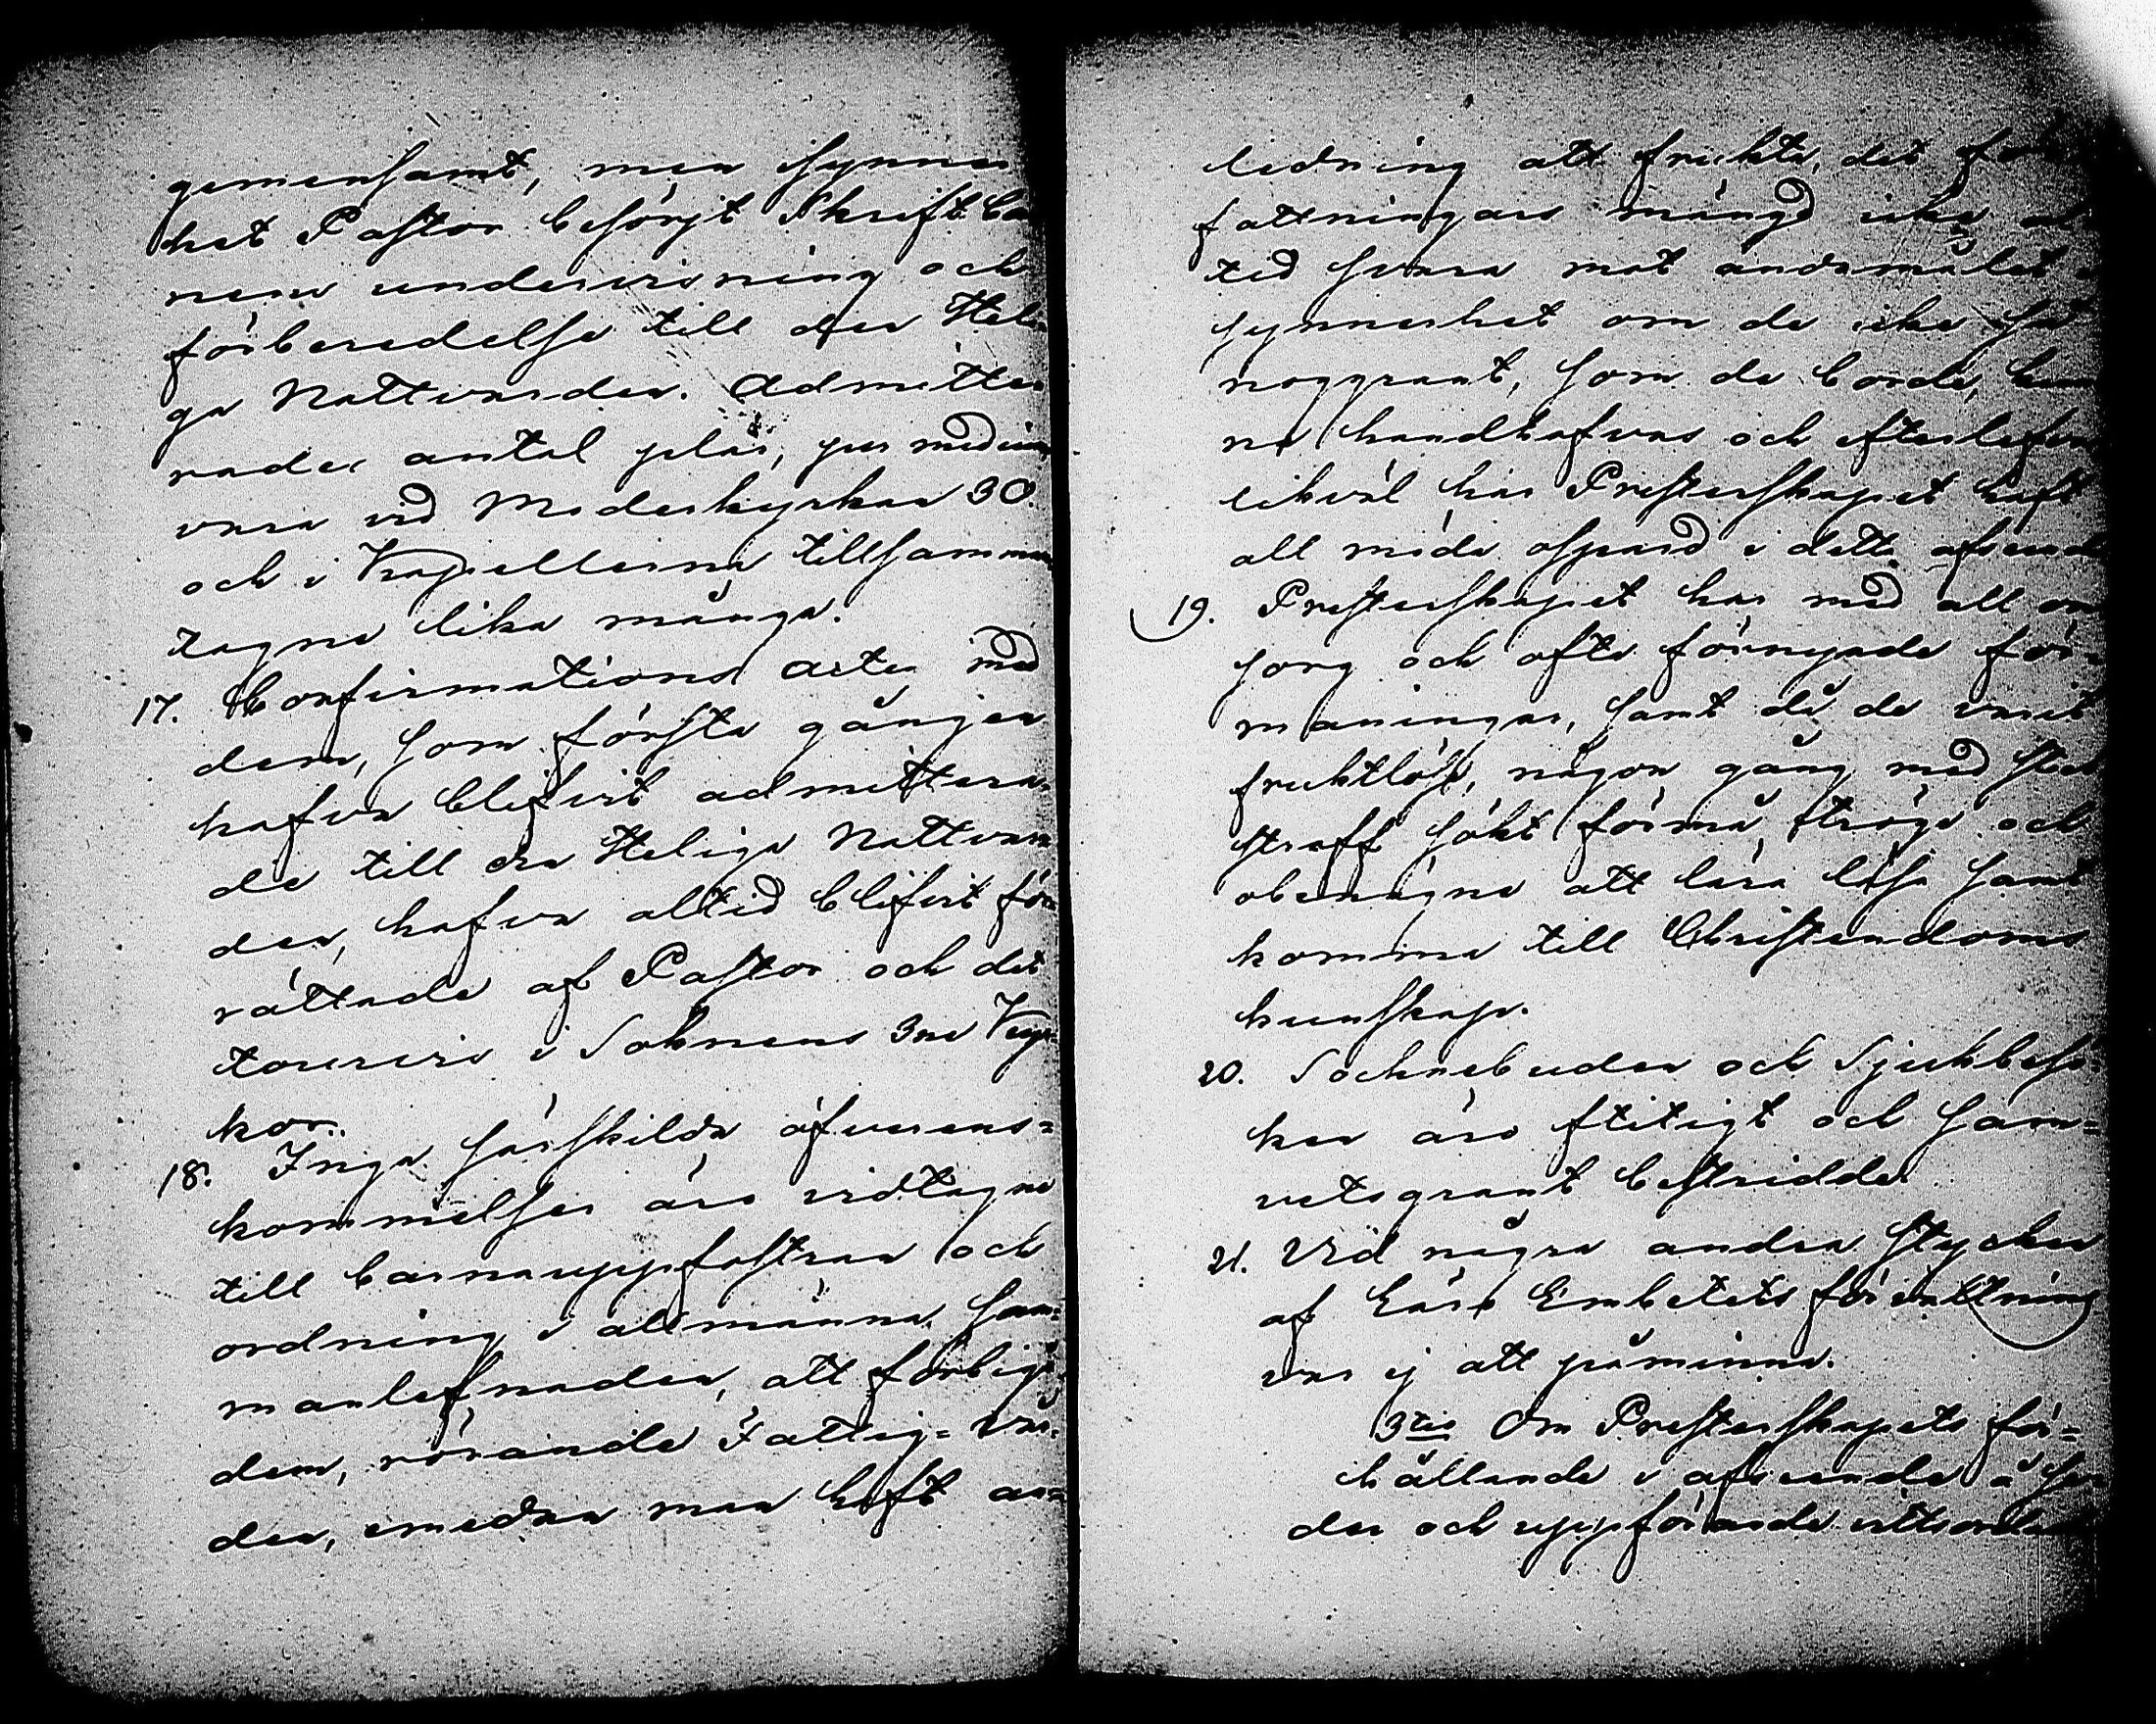 gemensamt, men synner
het Pastor besörjt Skriftba
nens undervisning och
förberedelse till den Heli
ga Nattvarden. Admitte
rades antal plär, per medium
vara vid Moderkyrkan 30
och i Kapellerna tillsamman
tagne lika många.
17. Confirmations acten med
dem, som första gången
hafva blifvit admittera-
de till den Heliga Nattvar
den, hafva altid blifvit för
rättade af Pastor och det
tourvis i Soknens 3ne Kyr-
kor.
18. Inga särskilda öfverens=
kommelser äro vidtagne
till barnauppfostran och
ordning i allmänna sam-
manlefnaden, att förbigå
dem, rörande Fattig=vår-
den, emedan man haft an=
ledning att frukta, det för
fattningars mängd icke al
tid svara mot ändamålet i
synnerhet om de icke så
noggrant, som de borde, kun
na handhafvas och efterlefvas
likväl har Presterskapet haft
all möda ospard i detta afseende
19. Presterskapet har med all om
sorg och ofta förnyade för-
maningar, samt då de varit
fruktlöse, någon gång med stock
straff sökt förmå tröge och
obenägne att lära läsa samt
komma till Christendoms
kunskap.
20. Sochnebuden och Sjukbesö
ken äro flitigt och sam=
vetsgrant bestridde
21. Vid några andra stycken
af Läro Embetets förvattning
var ej att påminna.
3tio Om Presterskapets för=
hållande i afseende å se
der och uppförande vitsordade